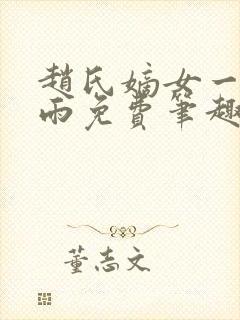 趙氏嫡女一
雨免費筆趣
董志文